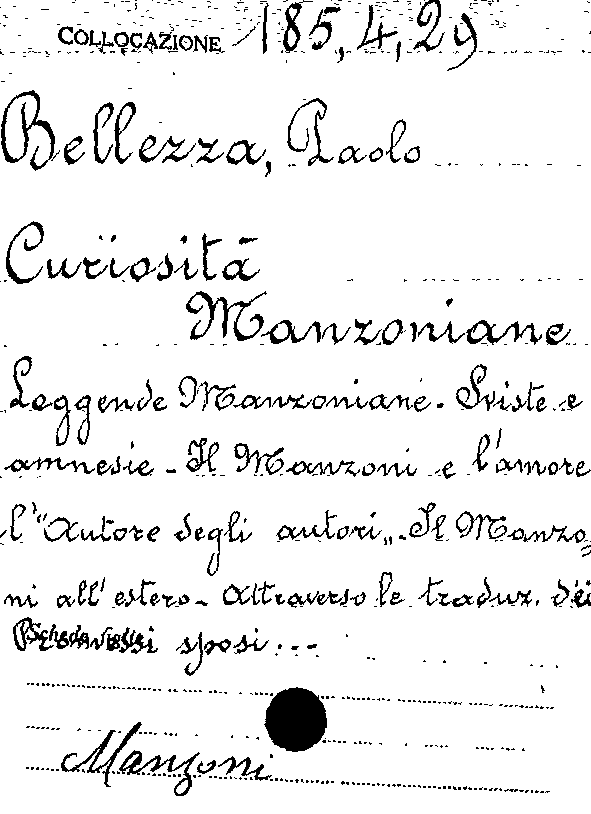 COLLOCAZIONE 185,4,29
Bellezza, Paolo
Curiosità
Manzoniane
Leggende Manzoniane - Sviste e
amnesie - Il Manzoni e l'amore
l'"Autore degli autori„ - Il Manzo-
ni all'estero - Attraverso le traduz. dei
Promessi sposi...
Manzoni